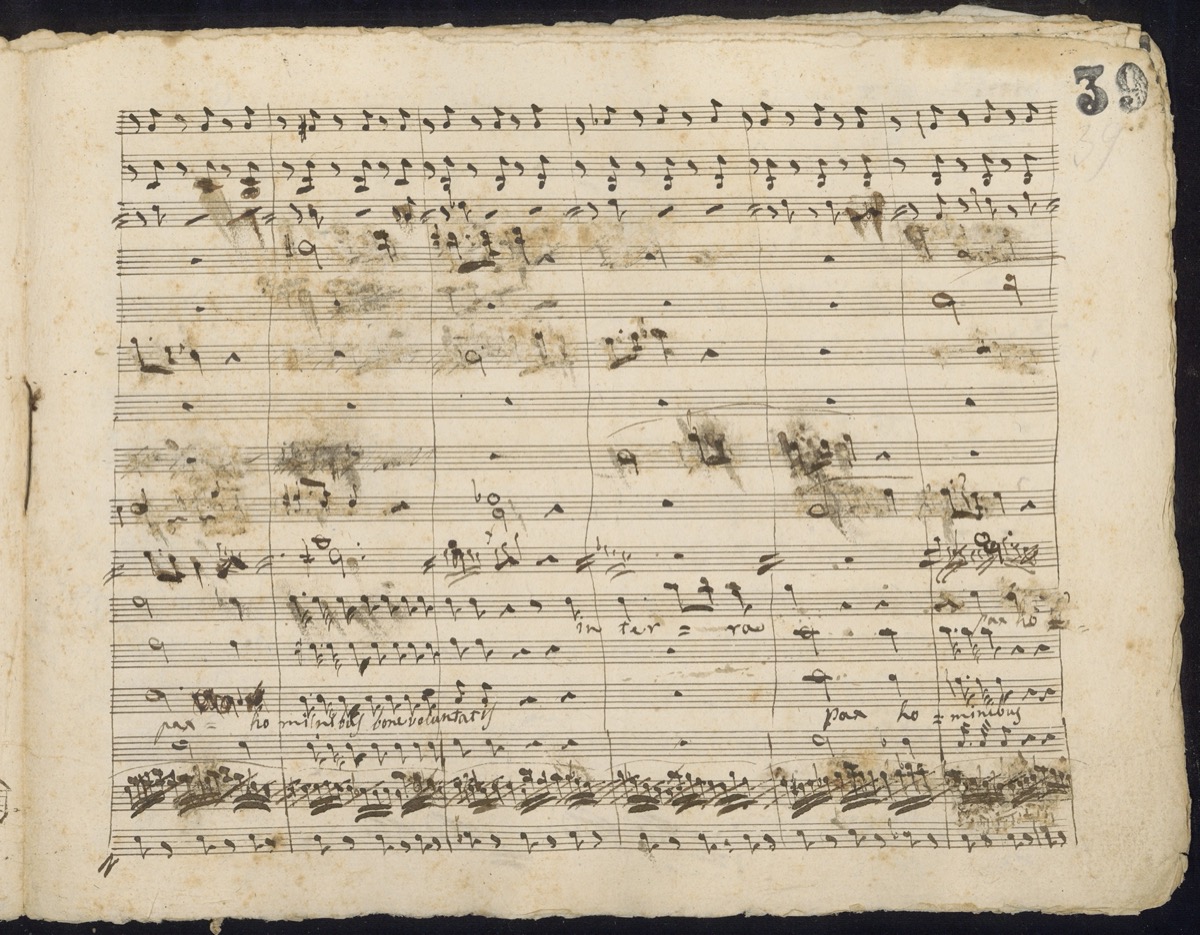 39
39
in ter = ra
pax ho =
pax = ho minibus bone voluntatis
pax ho = minibus